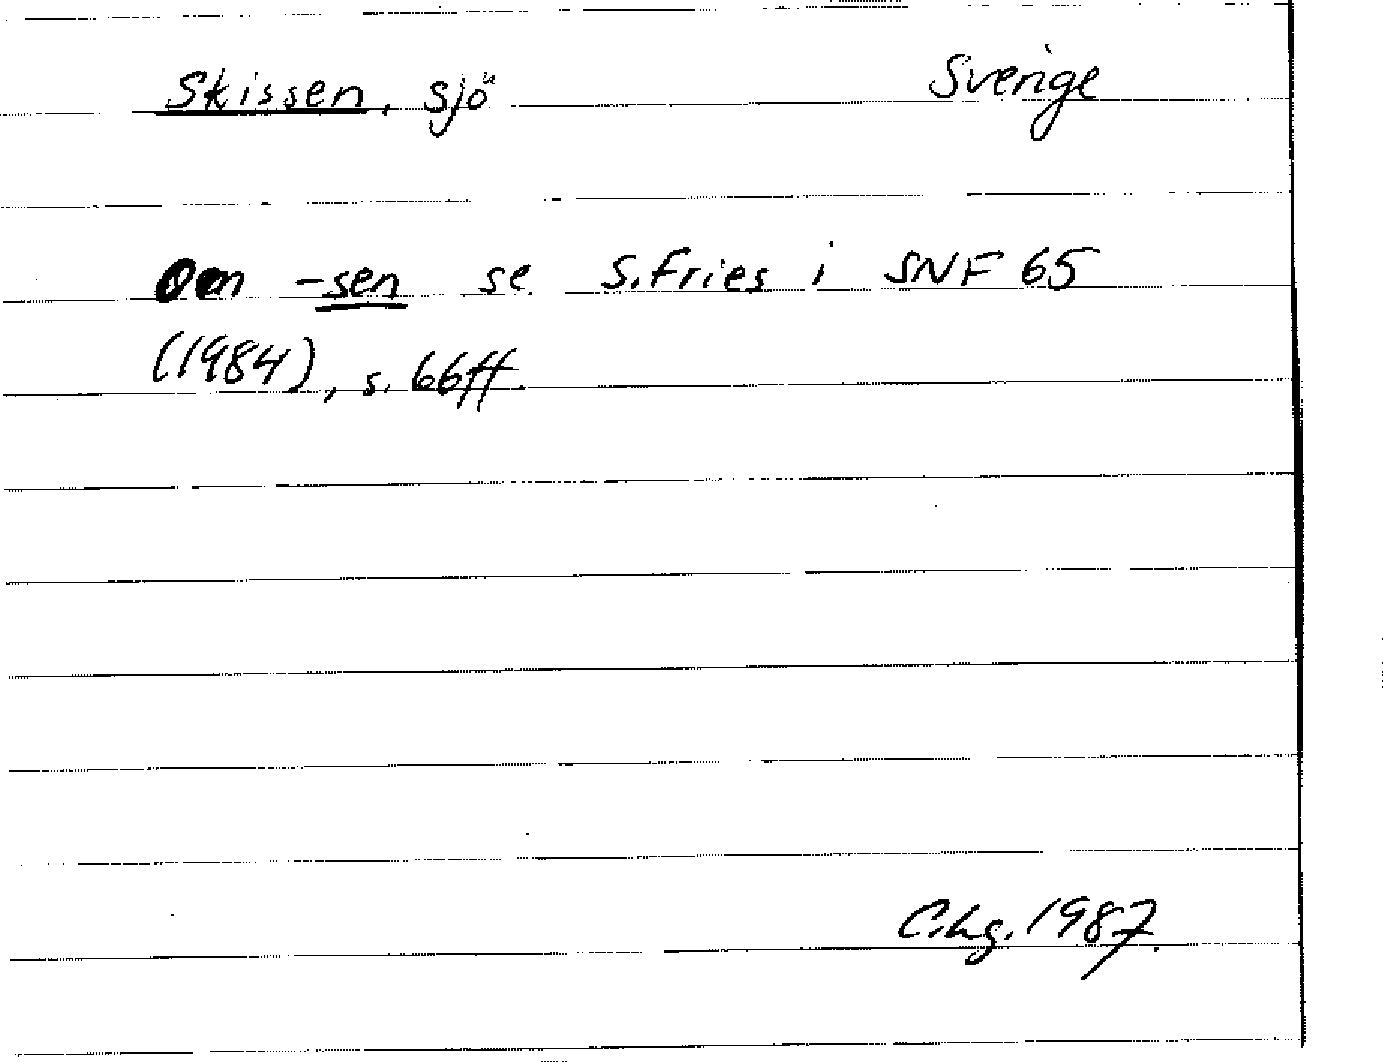 Skissen, sjö Sverige
Om -sen se S. Fries i SNF 65
(1984), s. 66ff.
C.Lg. 1987.